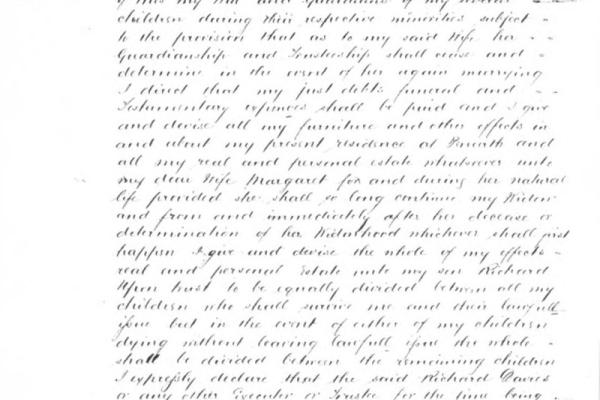 of this my Will and Guardians of my
children during their respective minorities subject -
to the provision that as to my said Wife her - -
Guardianship and Trusteeship shall cease and -
determine in the event of her again marrying
I direct that my just debts funeral and - -
Testamentary expences shall be paid and I give
and devise all my furniture and other effects in
and about my present residence at and
all my real and personal estate whatsoever unto
my dear Wife Margaret for and during her natural
life provided she shall so long continue my Widow
and from and immediately after her decease or
determination of her Widowhood whichever shall first
happen I give and devise the whole of my effects -
real and personal Estate unto my son Richard
Upon trust to be equally divided between all my
children who shall survive me and their lawfull
issue but in the event of either of my children
dying without leaving lawfull issue the whole -
shall be divided between the remaining children
I expressly declare that the said Richard Davies
or any other Executor or Trustee for the time being